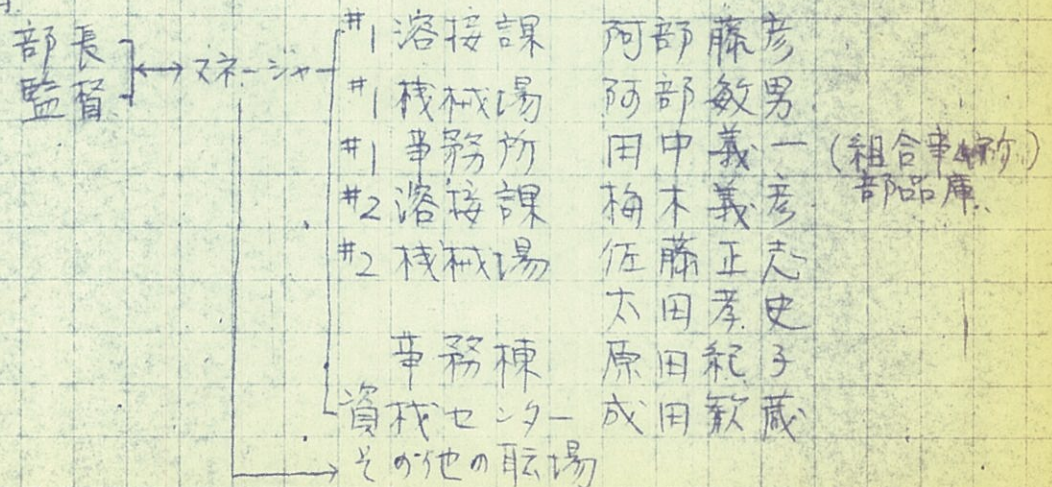 部長
監督
マネージャー
#1 溶接課 阿部藤彦
#1 機械場 阿部敏男
#1 事務所 田中義一 (組合事務所)
部品庫
#2 溶接課 梅木義彦
#2 機械場 佐藤正志
太田孝史
事務棟 原田紀子
資材センター 成田歓蔵
その他の職場